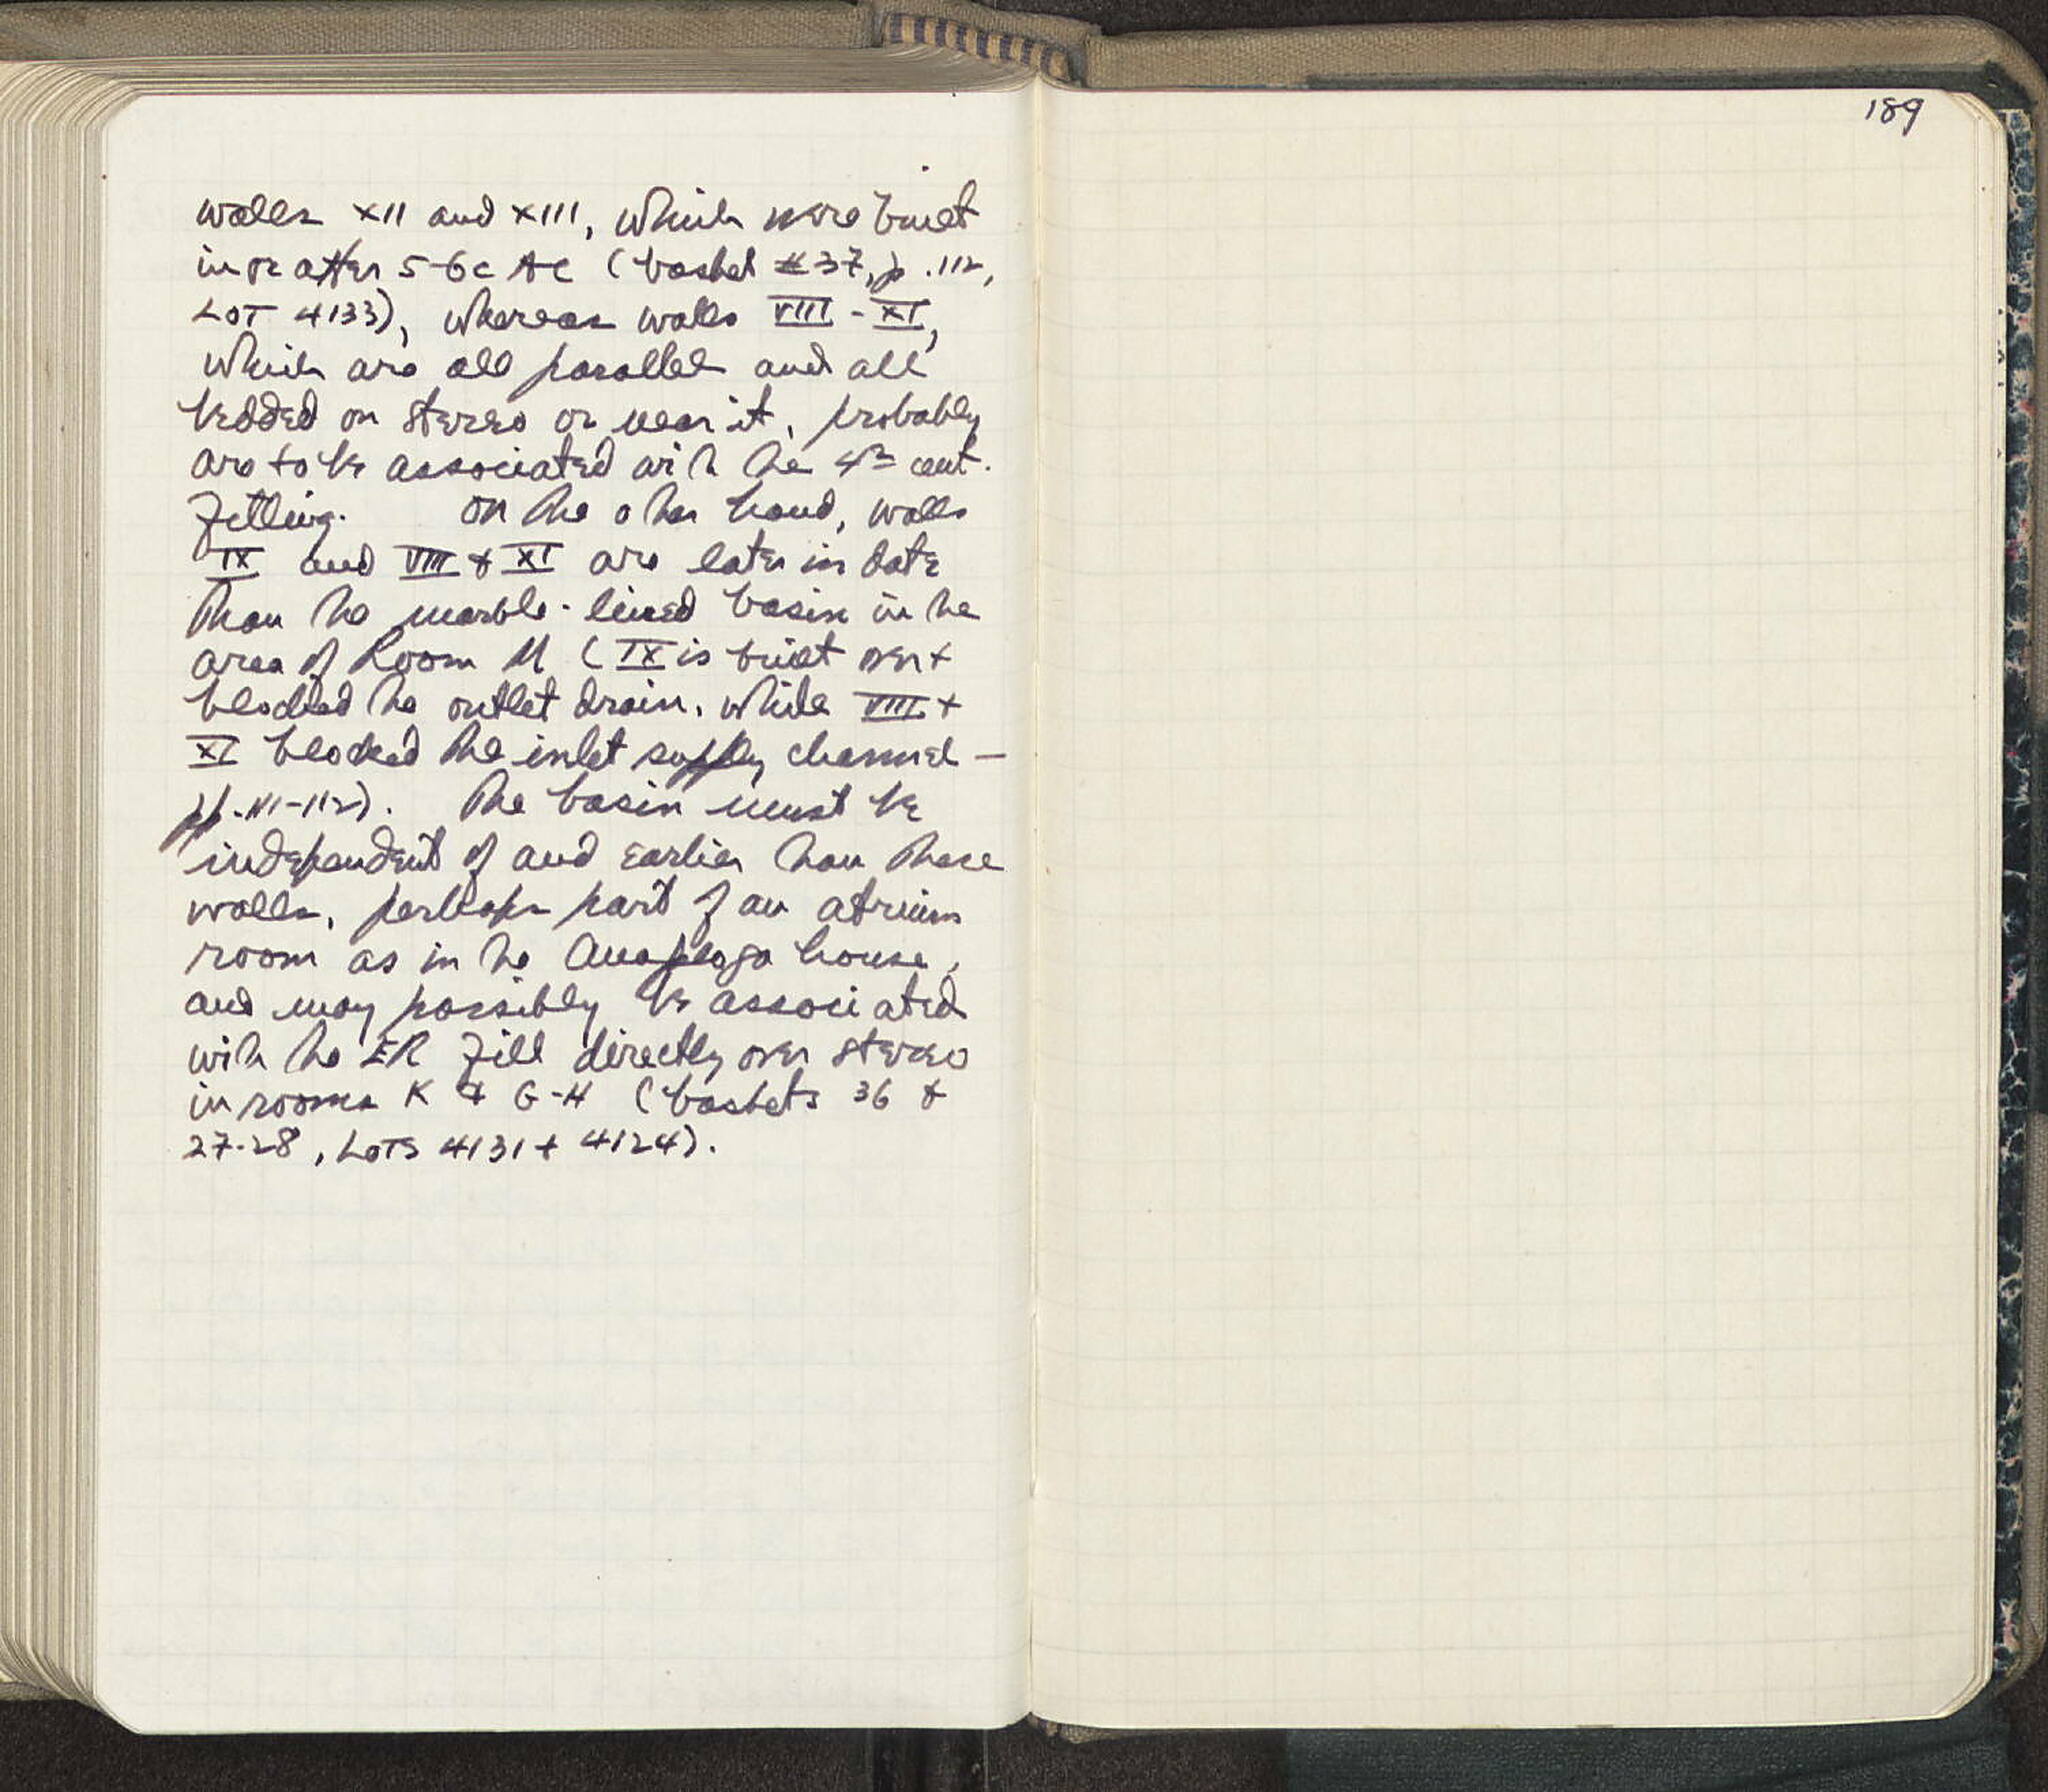 walls XII and XIII, which were built
in or after 5-6c AC (basket #37, p. 112,
LOT 4133), whereas walls VIII - XI,
which are all parallel and all
bedded on stereo or near it, probably
are to be associated with the 4th cent.
filling. On the other hand, walls
IX and VIII & XI are later in date
than the marble-lined basin in the
area of Room M (IX is built over +
blocked the outlet drain, while VIII +
XI blocked the inlet supply channel —
pp. 111-112). The basin must be
independent of and earlier than these
walls, perhaps part of an atrium
room as in the Anaploga house,
and may possibly be associated
with the ER fill directly over stereo
in rooms K & G-H (baskets 36 &
27-28, LOTS 4131 + 4124).
189